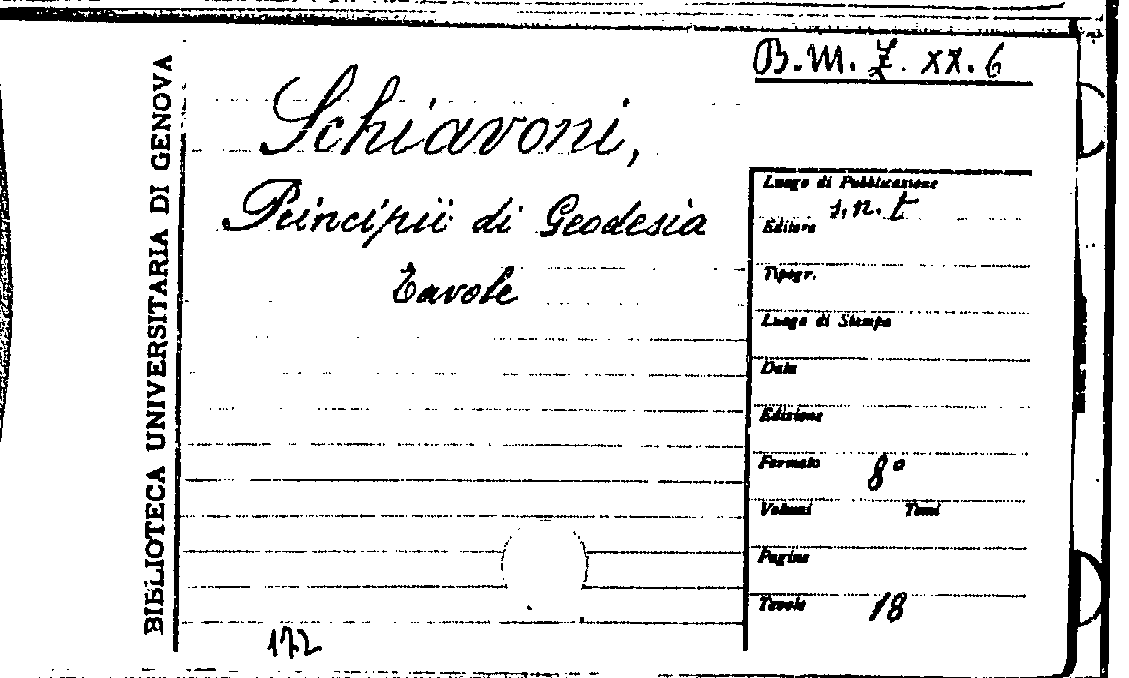 BIBLIOTECA UNIVERSITARIA DI GENOVA
B.M. Z. XX. 6
Schiavoni,
Principii di Geodesia
Tavole
Luogo di Pubblicazione
s.n.t
Editore
Tipogr.
Luogo di Stampa
Data
Edizione
Formato 8°
Volumi Tomi
Pagine
Tavole 18
172